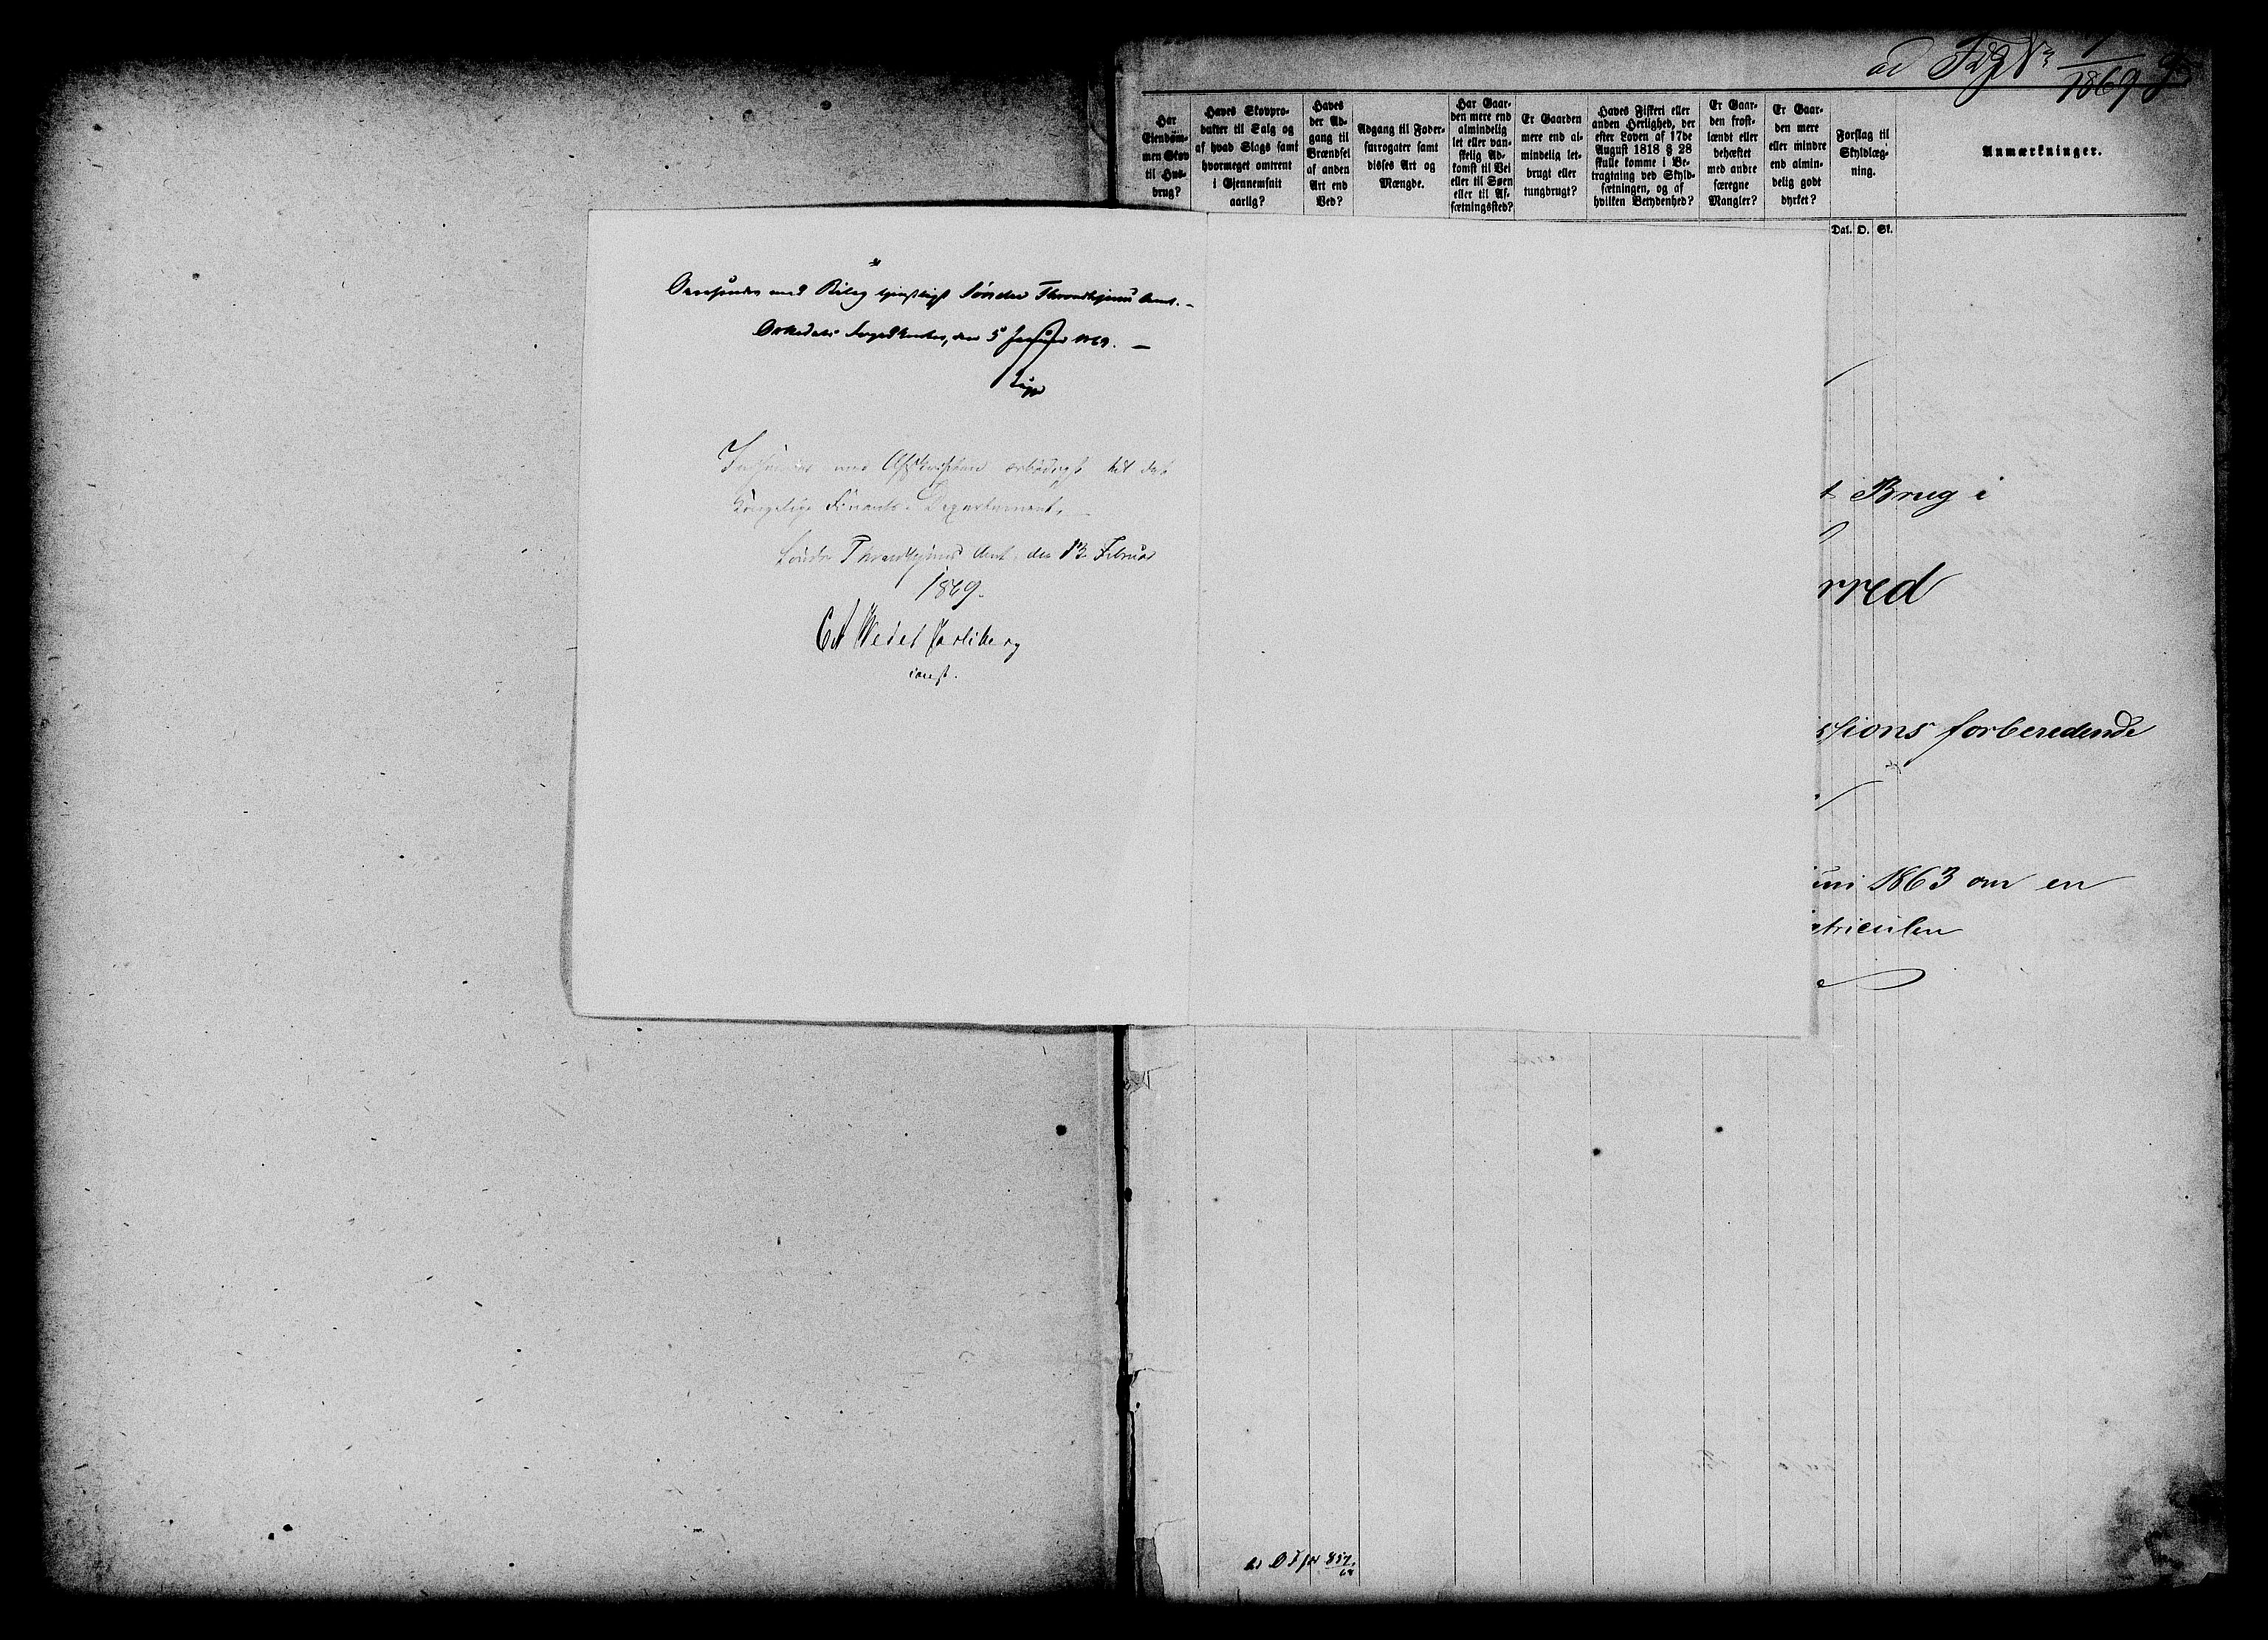 1869
Har
Eiendom-
men Skov
til Hus-
brug?
Haves Skovpro-
dukter til Salg og
af hvad Slags samt
hvormeget omtrent
i Gjennemsnit
aarlig?
Haves
der Ad-
gang til
Brændsel
af anden
Art end
Ved?
Adgang til Foder-
surrogater samt
disses Art og
Mængde.
Har Gaar-
den mere end
almindelig
let eller van-
skelig Ad-
komst til Vei
eller til Søen
eller til Af-
sætningssted?
Er Gaarden
mere end al-
mindelig let-
brugt eller
tungbrugt?
Haves Fiskeri eller
anden Herlighed, der
efter Loven af 17de
August 1818 § 28
skulle komme i Be-
tragtning ved Skyld-
sætningen, og af
hvilken Betydenhed?
Er Gaar-
den frost-
lændt eller
beheftet
med andre
særegne
Mangler?
Er Gaar-
den mere
eller mindre
end almin-
delig godt
dyrket?
Forslag til
Skyldlæg-
ning.
Anmærkninger.
Dal. O. Sk.
Oversendes med Bilag tjenstligst Søndre Throndhjems Amt. -
Orkedals Fogedkontor, den 5 Januar 1869. -
Indsendes med Afskriften ærbødigst til det
Kongelige Finants-Departement,
Søndre Throndhjems Amt, den 13 Februar
1869.
Wedel Jarlsberg
const.
t Brug i
rred
sions forberedende
uni 1863 om en
atriculen